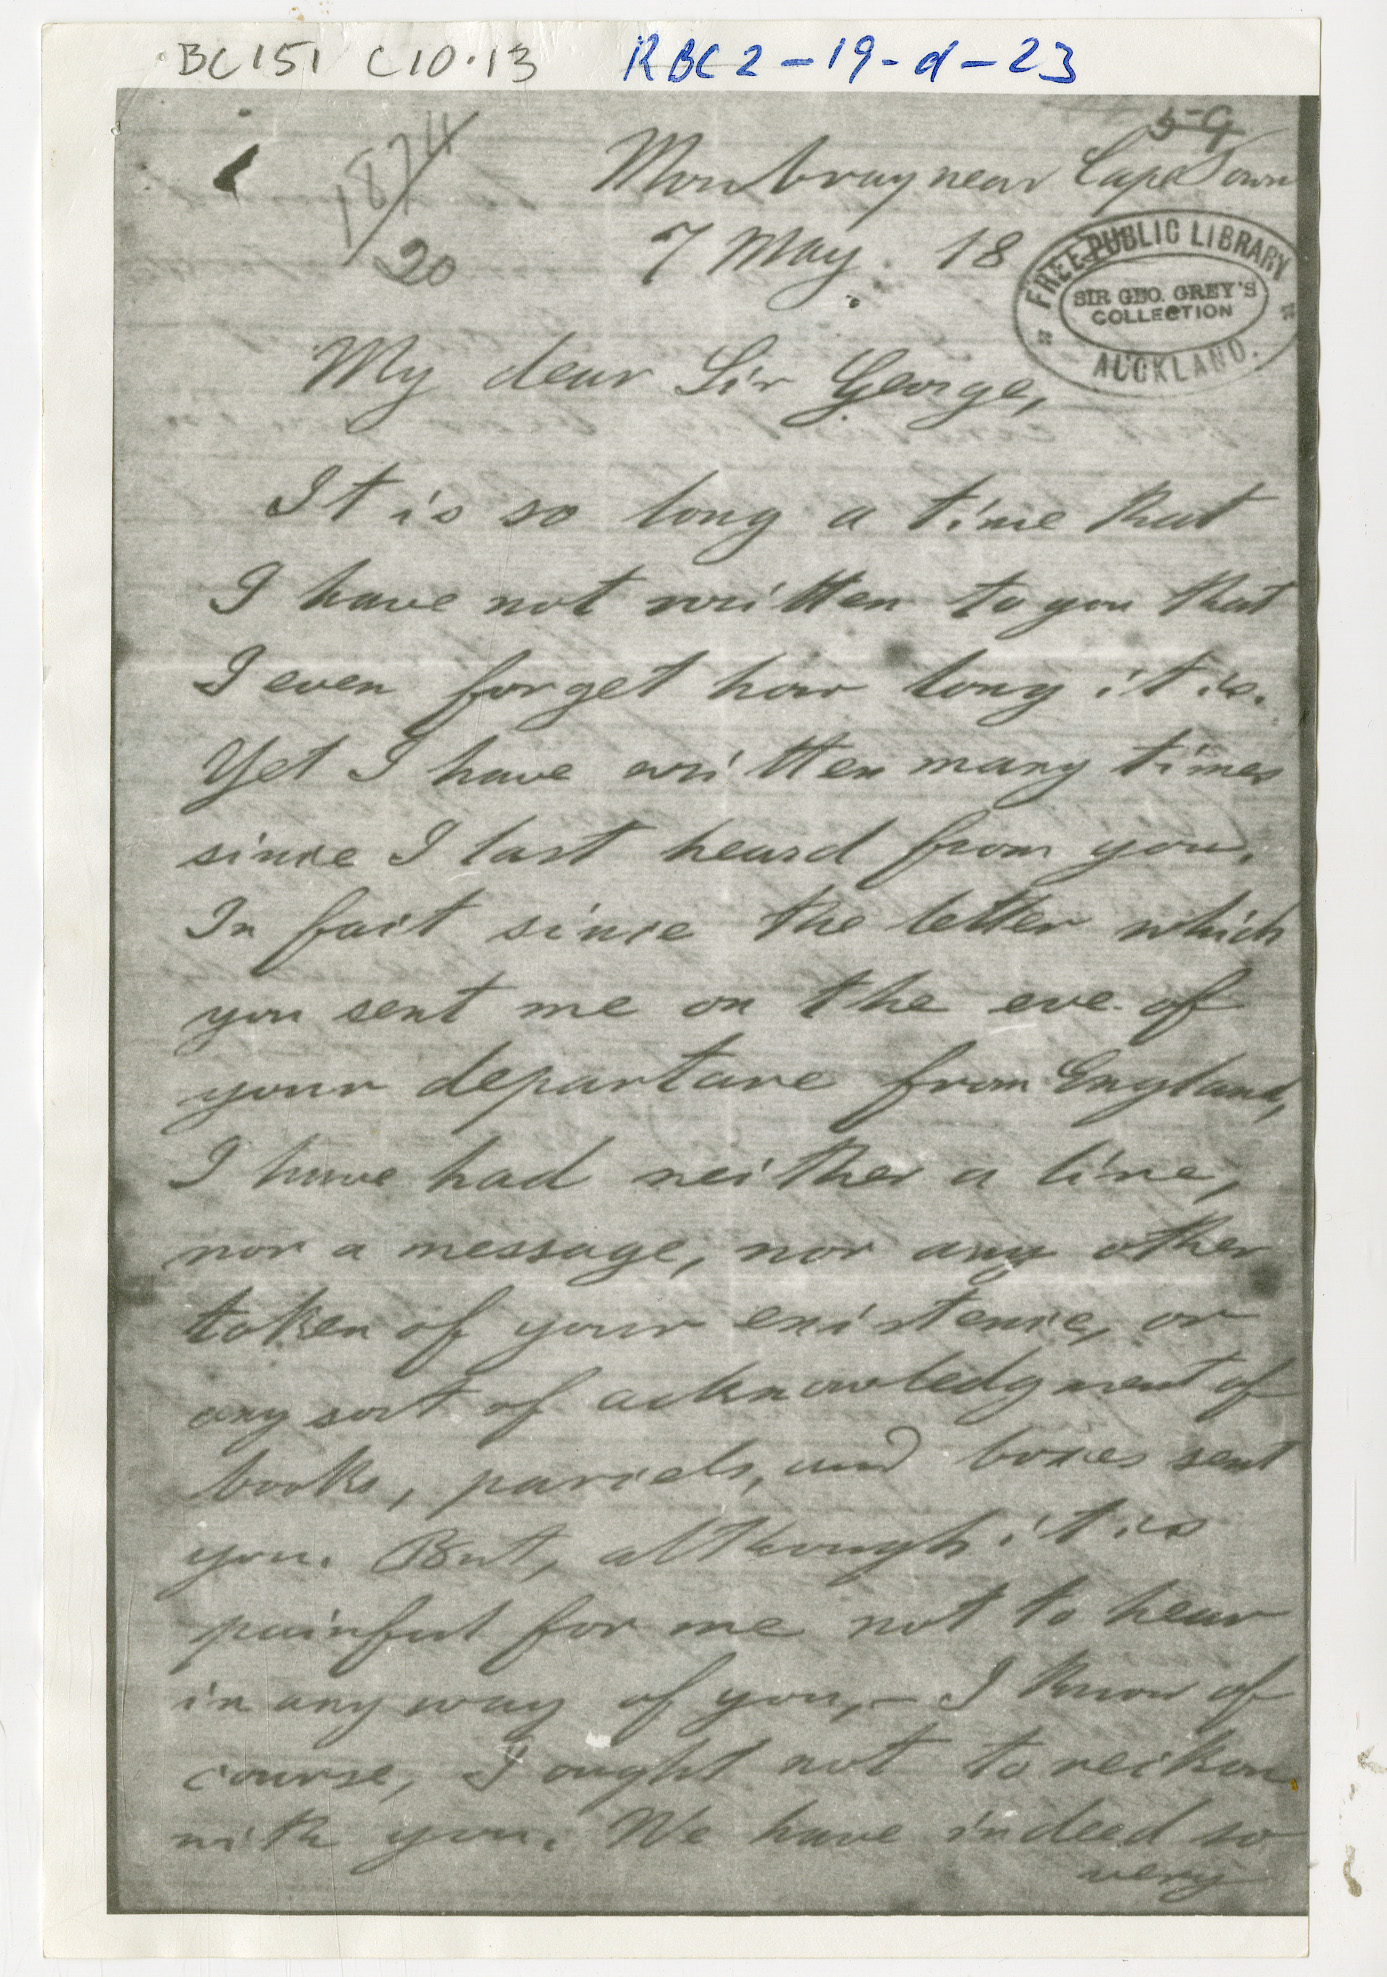 BC151 C10.13 RBC2-19-d-23
59
1874/20
Mowbray near Cape Town
7 May. 18
FREE PUBLIC LIBRARY
SIR GEO. GREY'S
COLLECTION
AUCKLAND.
My dear Sir George,
It is so long a time that
I have not written to you that
I even forget how long it is.
Yet I have written many times
since I last heard from you.
In fact since the letter which
you sent me on the eve of
your departure from England,
I have had neither a line,
nor a message, nor any other
token of your existence, or
any sort of acknowledgment of
books, parcels, and boxes sent
you. But, although it is
painful for me not to hear
in any way of you, – I know of
course, I ought not to reckon
with you. We have indeed so
very